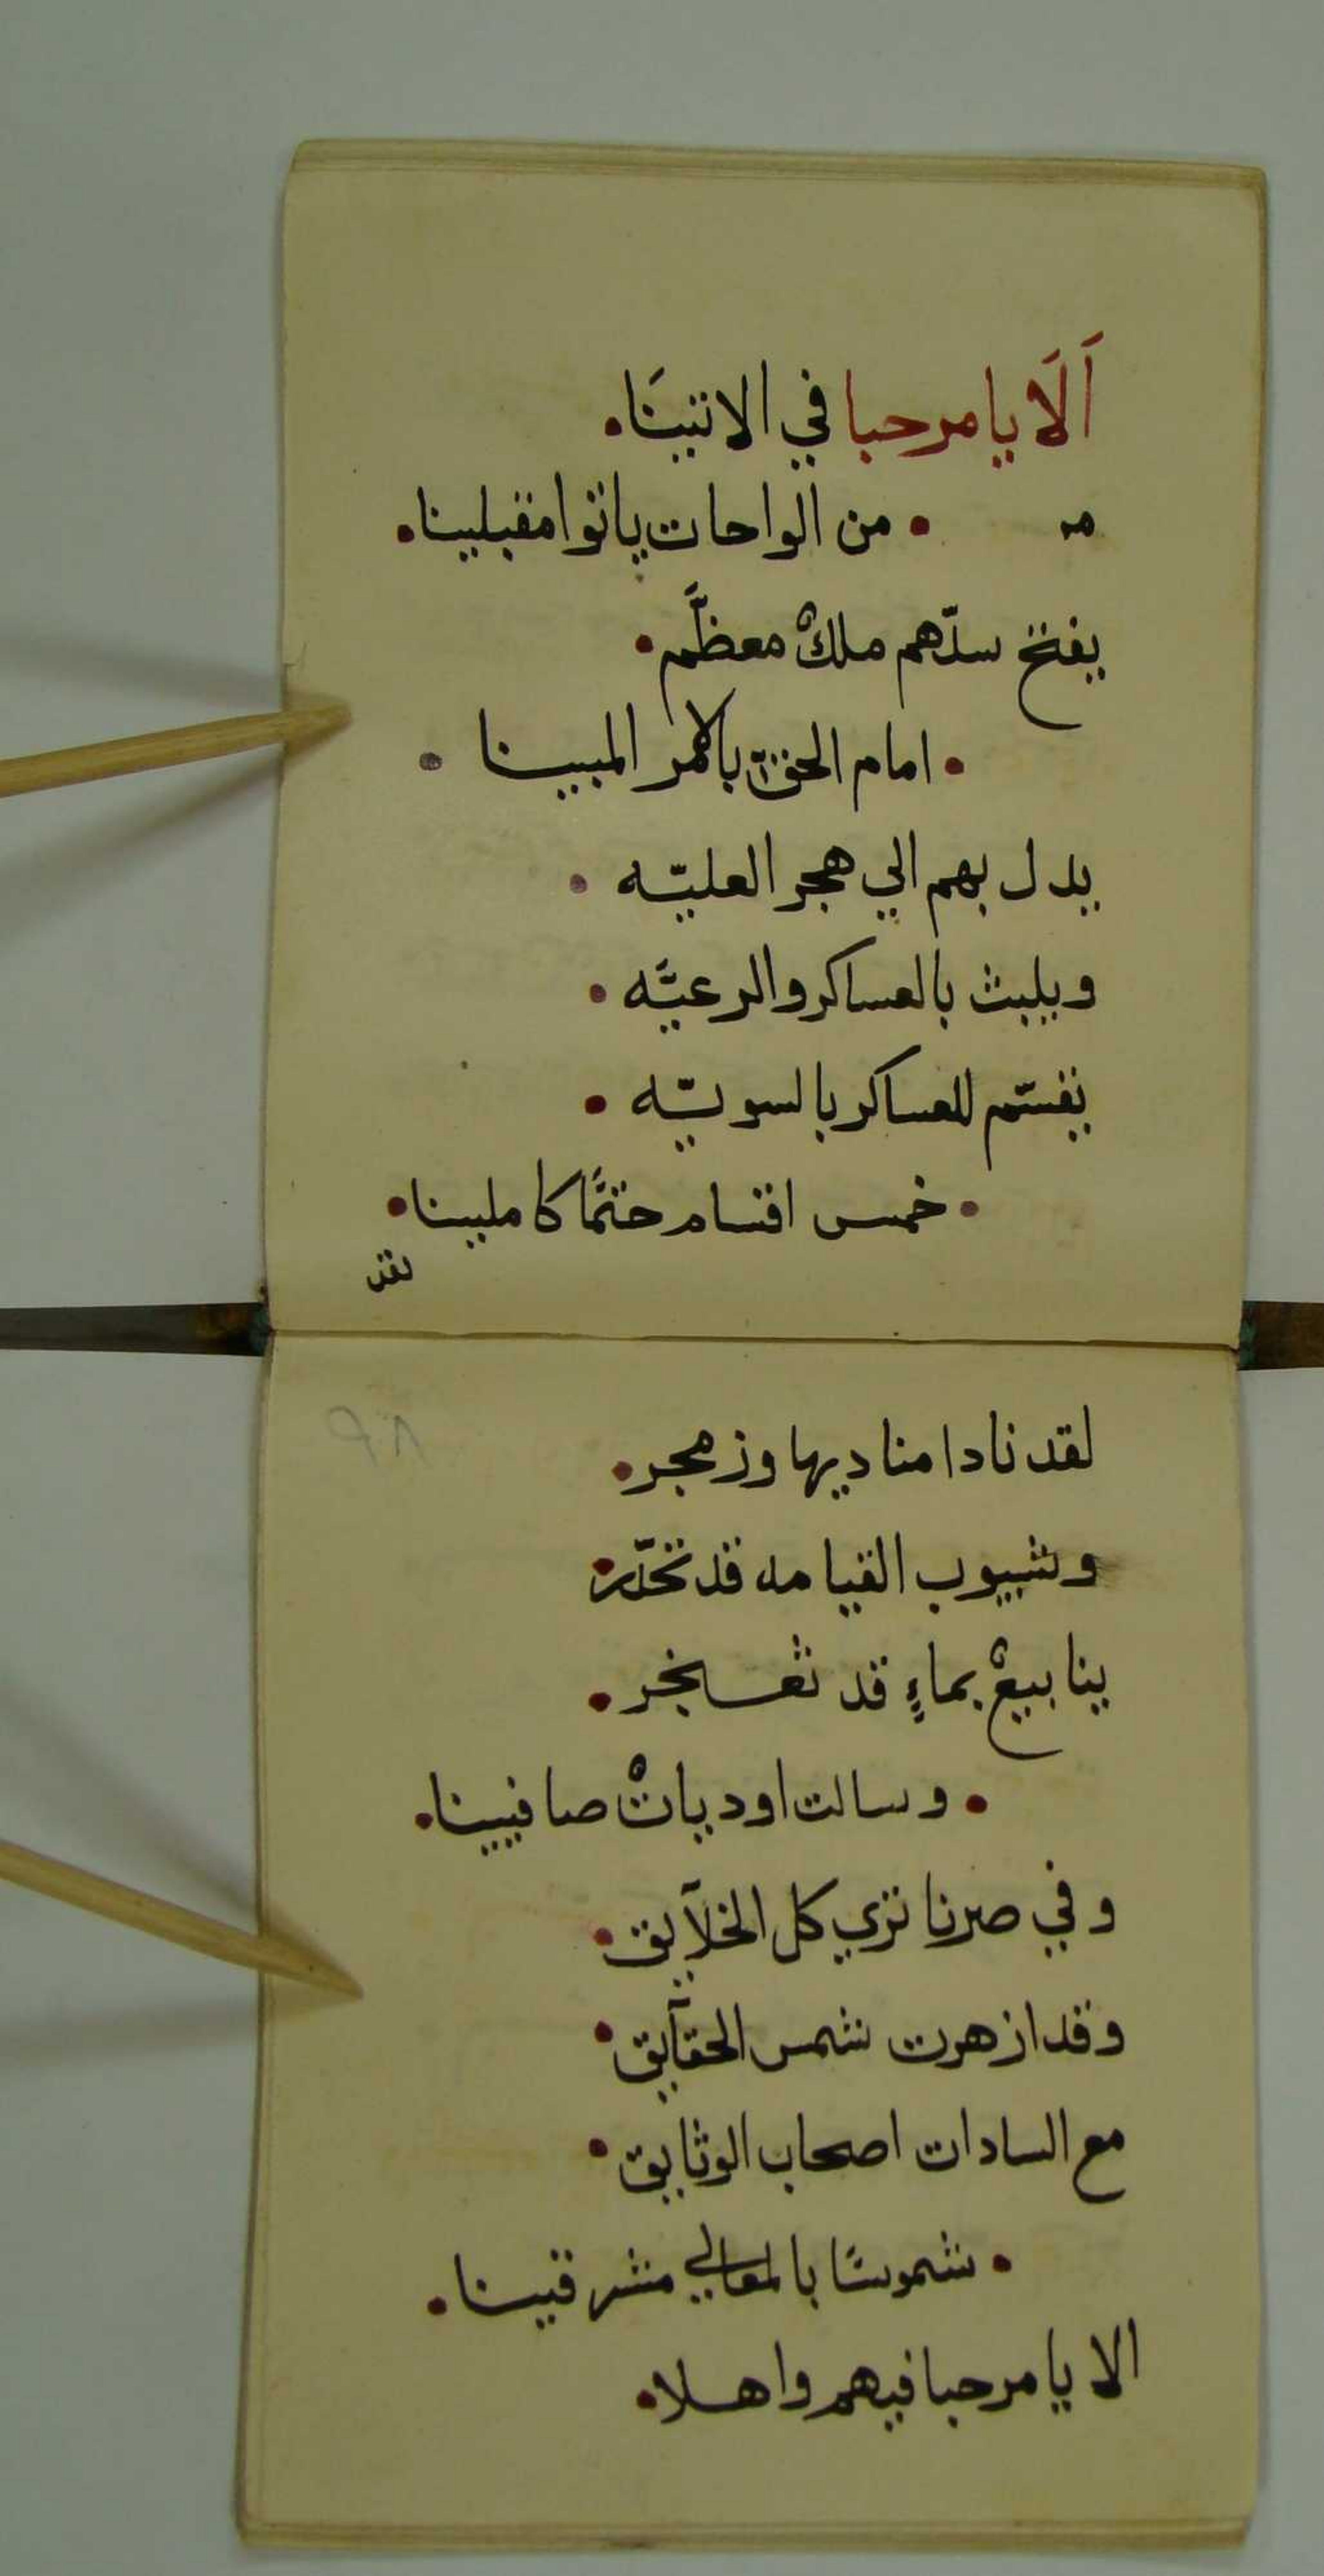 اَلَا يا مرحبا في الاتيينَا •
مر • من الواحات ياتوا مقبلينا •
يفتح سدّهم ملكْ معظَّم •
• امام الحقّ بالامر المبيينا •
يدل بهم الي هجر العليّه •
ويلبث بالعساكر والرعيَّه •
يقسّم للعساكر بالسويّه •
• خمس اقسام حتمًا كاملينا •
لقد
لقد نادا مناديها وزمجر •
وشيبوب القيامه قد تحدّر •
ينابيعْ بماءٍ قد تفجر •
• وسالت اودياتْ صافيينا •
وفي صرنا نري كل الخلآيق •
وقد ازهرت شمس الحقآيق •
مع السادات اصحاب الوثايق •
• شموسًا بالمعالي مشرقينا •
الا يا مرحبا فيهم واهلا •